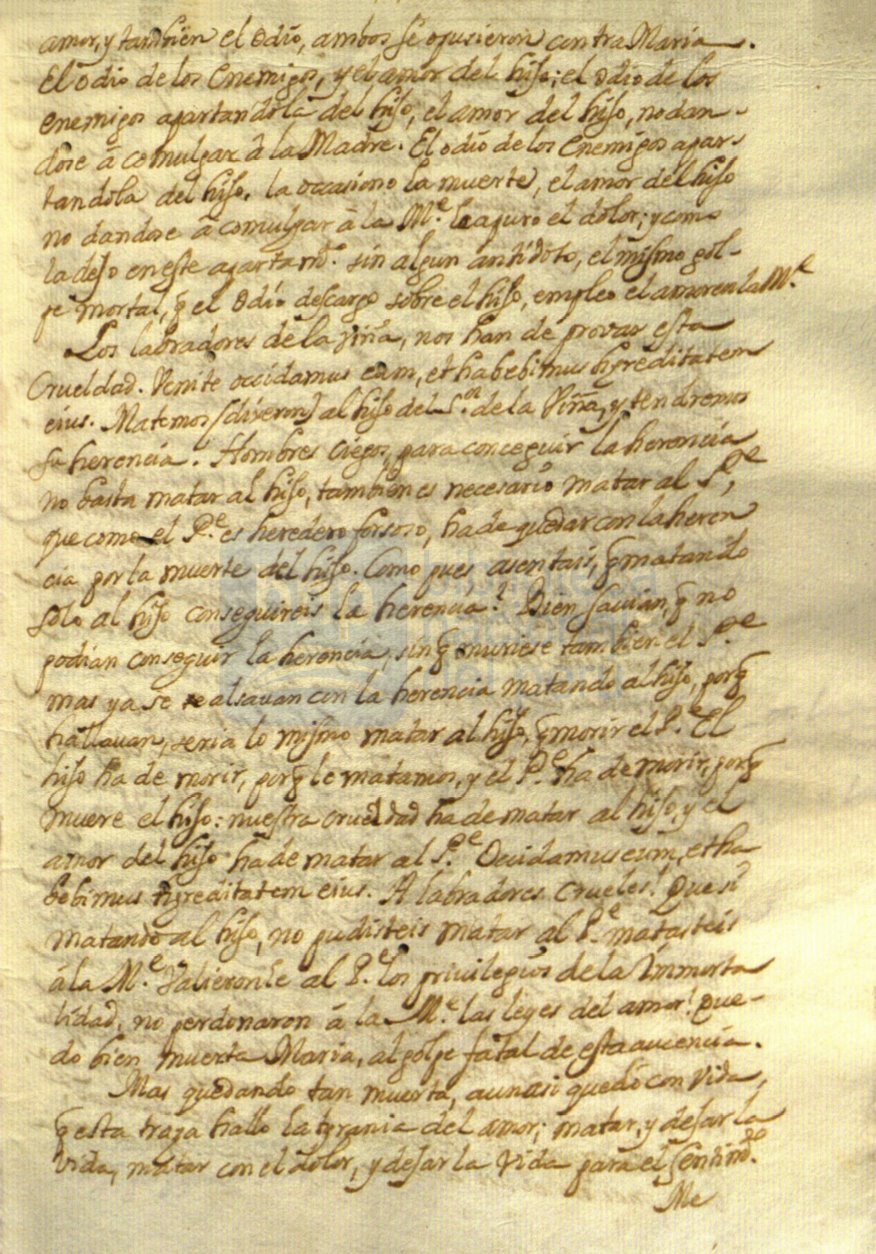 amor, y tambien el odio, ambos se opusieron contra Maria.
El odio de los Enemigos, y el amor del hijo; el odio de los
enemigos apartandola del hijo, el amor del hijo, no dan-
dose â comulgar â la Madre. El odio de los Enemigos apar-
tandola del hijo, la occasionò la muerte, el amor del hijo
no dandose â comulgar â la Mᵉ. le apurò el dolor; y como
la dejò en este apartamᵗᵒ. sin algun antidoto, el mismo gol-
pe mortal, q̃ el odio descargò sobre el hijo, empleò el amor en la Mᵉ.
Los labradores de la viña, nos han de provar esta
Crueldad. Venite occidamus eum, et habebimus hęreditatem
eius. Matemos (dixeron) al hijo del Sᵒʳ. de la Viña, y tendremos
su herencia. Hombres ciegos, para conceguir la herencia
no basta matar al hijo, tambien es necesario matar al Pᵉ,
que como el Pᵉ. es heredero forsoso, ha de quedar con la heren
cia por la muerte del hijo. Como pues asentais, q̃ matando
solo al hijo conseguireis la herencia? Bien savian, q̃ no
podian conseguir la herencia, sin q̃ muriese tambien el Pᵉ
mas ya se alsavan con la herencia matando al hijo, porq̃
hallavan, seria lo mismo matar al hijo, q̃ morir el Pᵉ. El
hijo ha de morir, porq̃ le matamos, y el Pᵉ. ha de morir, porq̃
muere el hijo: nuestra crueldad ha de matar al hijo, y el
amor del hijo ha de matar al Pᵉ. Occidamus eum, et ha
bebimus hęreditatem eius. A labradores crueles! Que si
matando al hijo, no pudisteis matar al Pᵉ. matasteis
â la Mᵉ. Valieronle al Pᵉ. los privilegios de la Immorta
lidad, no perdonaron â la Mᵉ. las leyes del amor! Que-
dò bien muerta Maria, al golpe fatal de esta aucencia.
Mas quedando tan muerta, aun asi quedò con vida,
q̃ esta traza hallò la tyrania del amor; matar, y dejar la
vida, matar con el dolor, y dejar la vida para el sentimᵗᵒ.
Me